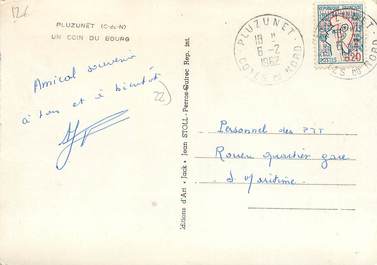 126
PLUZUNET (C-du-N)
UN COIN DU BOURG
Amical souvenir
à tous et à bientôt
22
Editions d'Art - Jack - Jean STOLL - Perros-Guirec Rep. int.
PLUZUNET
18 H
6-2
1962
COTES DU NORD
0,20
Personnel des PTT
Rouen quartier gare
S. Maritime